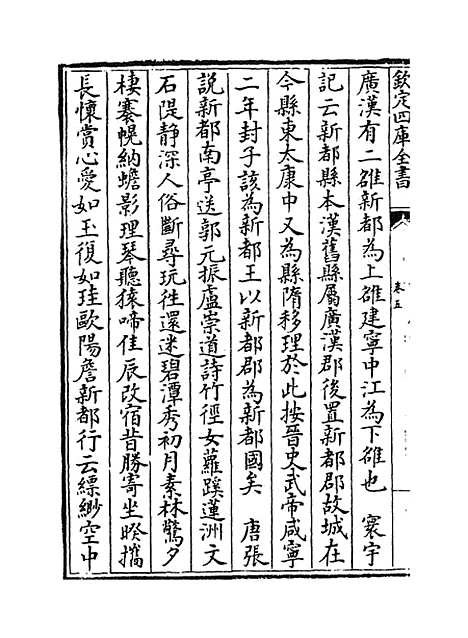 欽定四庫全書
卷五
廣漢有二雒新都為上雒建寧中江為下雒也　寰宇
記云新都縣本漢舊縣屬廣漢郡後置新都郡故城在
今縣東太康中又為縣隋移理於此按晉史武帝咸寧
二年封子該為新都王以新都郡為新都國矣　唐張
説新都南亭送郭元振盧崇道詩竹徑女蘿蹊蓮洲文
石隄靜深人俗斷尋玩往還迷碧潭秀初月素林驚夕
棲褰幌納蟾影理琴聽猿啼佳辰改宿昔勝寄坐暌攜
長懷賞心愛如玉復如珪歐陽詹新都行云縹緲空中